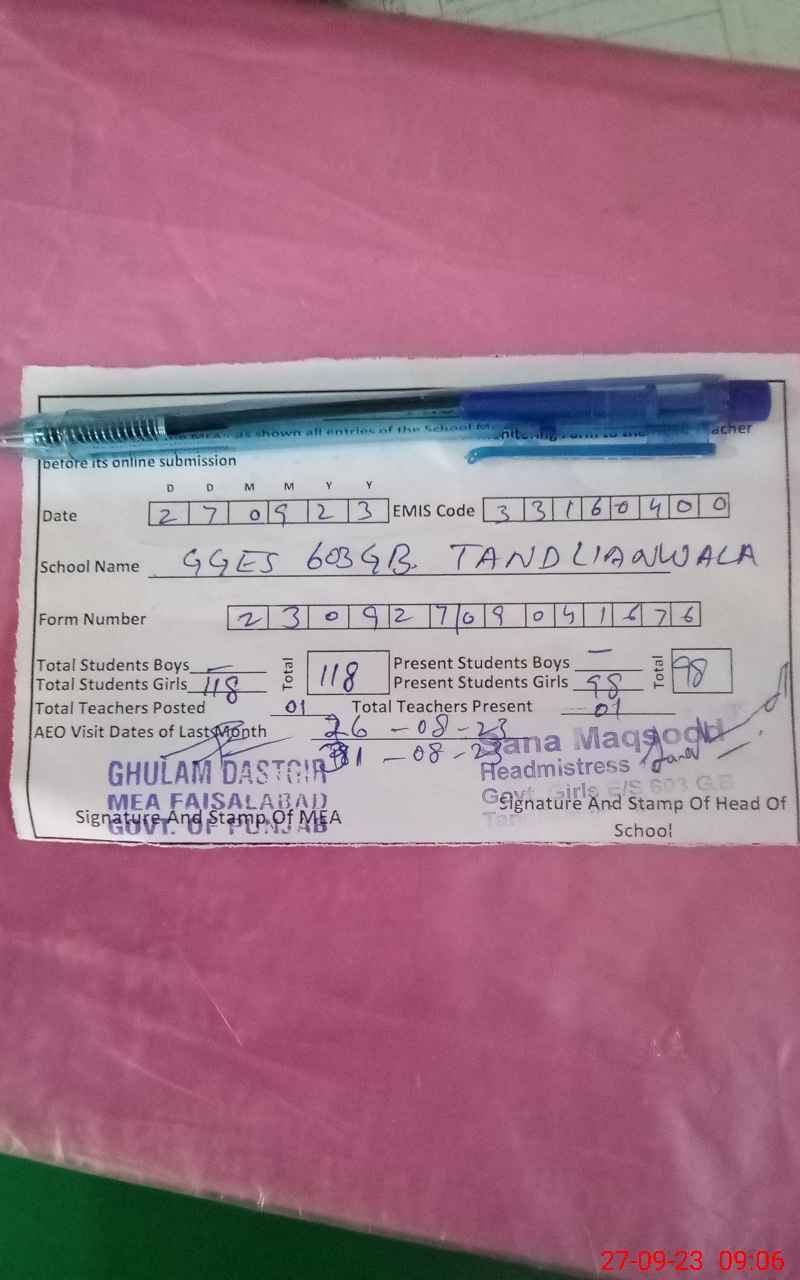 as shown all entries of the School
before its online submission
D D M M Y Y
Date 2 7 0 9 2 3 EMIS Code 3 3 1 6 0 4 0 0
School Name GGES 603 GB TANDLIANWALA
Form Number 2 3 0 9 2 7 0 9 0 4 1 6 7 6
Total Students Boys — Total 118 Present Students Boys — Total 98
Total Students Girls 118 Present Students Girls 98
Total Teachers Posted 01 Total Teachers Present 01
AEO Visit Dates of Last Month 26 - 08 - 23
31 - 08 - 23
GHULAM DASTGIR
MEA FAISALABAD
GOVT. OF PUNJAB
Signature And Stamp Of MEA
Sana Maqsood
Headmistress
Govt. Girls E/S 603 G.B
Signature And Stamp Of Head Of
School
27-09-23 09:06